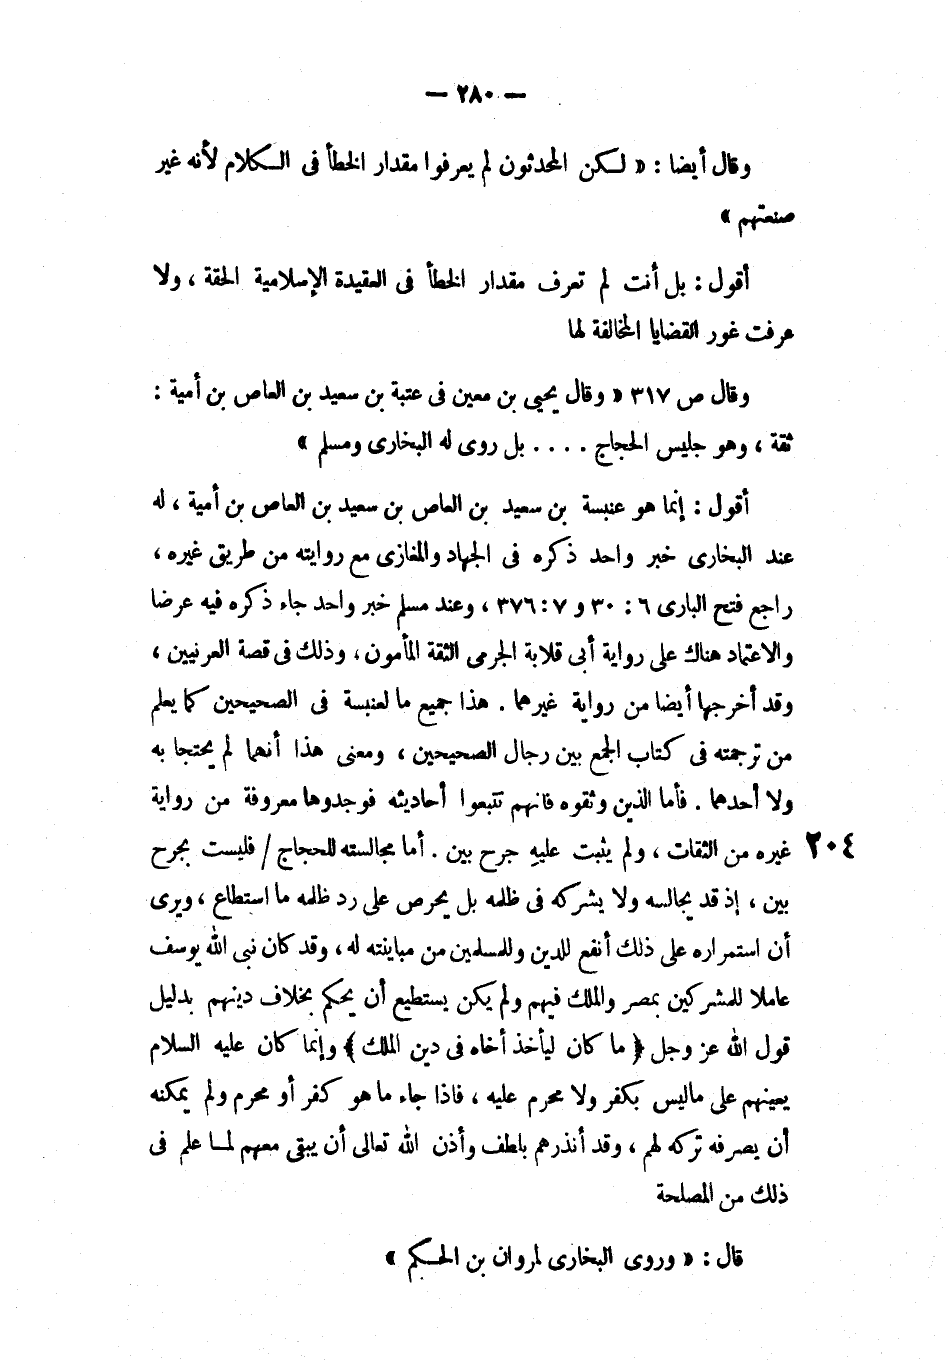 — ٢٨٠ —
وقال أيضا : « لكن المحدثون لم يعرفوا مقدار الخطأ فى الكلام لأنه غير
صنعتهم »
أقول : بل أنت لم تعرف مقدار الخطأ فى العقيدة الإسلامية الحقة ، ولا
عرفت غور القضايا المخالفة لها
وقال ص ٣١٧ « وقال يحيى بن معين فى عتبة بن سعيد بن العاص بن أمية :
ثقة ، وهو جليس الحجاج . . . . بل روى له البخارى ومسلم »
أقول : إنما هو عنبسة بن سعيد بن العاص بن سعيد بن العاص بن أمية ، له
عند البخارى خبر واحد ذكره فى الجهاد والمغازى مع روايته من طريق غيره ،
راجع فتح البارى ٦ : ٣٠ و ٧ : ٣٧٦ ، وعند مسلم خبر واحد جاء ذكره فيه عرضا
والاعتماد هناك على رواية أبى قلابة الجرمى الثقة المأمون ، وذلك فى قصة العرنيين ،
وقد أخرجها أيضا من رواية غيرهما . هذا جميع ما لعنبسة فى الصحيحين كما يعلم
من ترجمته فى كتاب الجمع بين رجال الصحيحين ، ومعنى هذا أنهما لم يحتجا به
ولا أحدهما . فأما الذين وثقوه فانهم تتبعوا أحاديثه فوجدوها معروفة من رواية
غيره من الثقات ، ولم يثبت عليهِ جرح بين . أما مجالسته للحجاج / فليست بجرح ٢٠٤
بين ، إذ قد يجالسه ولا يشركه فى ظلمه بل يحرص على رد ظلمه ما استطاع ، ويرى
أن استمراره على ذلك أنفع للدين وللمسلمين من مباينته له ، وقد كان نبى الله يوسف
عاملا للمشركين بمصر والملك فيهم ولم يكن يستطيع أن يحكم بخلاف دينهم بدليل
قول الله عز وجل ﴿ ما كان ليأخذ أخاه فى دين الملك ﴾ وإنما كان عليه السلام
يعينهم على ماليس بكفر ولا محرم عليه ، فاذا جاء ما هو كفر أو محرم ولم يمكنه
أن يصرفه تركه لهم ، وقد أنذرهم بلطف وأذن الله تعالى أن يبقى معهم لما علم فى
ذلك من المصلحة
قال : « وروى البخارى لمروان بن الحكم »